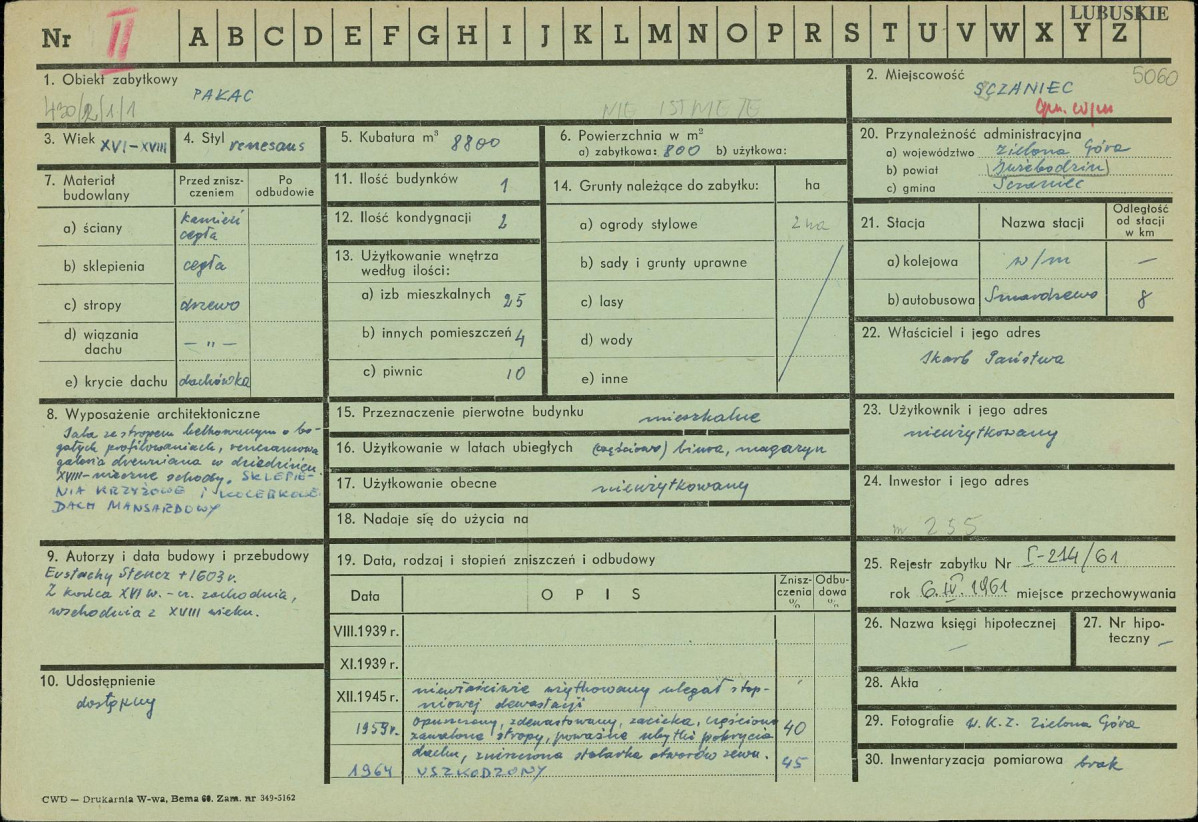 LUBUSKIE
Nr II A B C D E F G H I J K L M N O P R S T U V W X Y Z
1. Obiekt zabytkowy
PAŁAC
430/2/1/1
NIE ISTNIEJE
2. Miejscowość 5060
SCZANIEC
gm. w/m
3. Wiek XVI-XVIII
4. Styl renesans
5. Kubatura m³ 8800
6. Powierzchnia w m²
a) zabytkowa: 800 b) użytkowa:
20. Przynależność administracyjna
a) województwo Zielona Góra
b) powiat Świebodzin
c) gmina Sczaniec
7. Materiał budowlany
Przed zniszczeniem
Po odbudowie
a) ściany kamień cegła
b) sklepienia cegła
c) stropy drzewo
d) wiązania dachu — " —
e) krycie dachu dachówka
11. Ilość budynków 1
12. Ilość kondygnacji 2
13. Użytkowanie wnętrza według ilości:
a) izb mieszkalnych 25
b) innych pomieszczeń 4
c) piwnic 10
14. Grunty należące do zabytku: ha
a) ogrody stylowe 2 ha
b) sady i grunty uprawne
c) lasy
d) wody
e) inne
21. Stacja Nazwa stacji Odległość od stacji w km
a) kolejowa w/m —
b) autobusowa Smardzewo 8
22. Właściciel i jego adres
Skarb Państwa
8. Wyposażenie architektoniczne
Sala ze stropem belkowanym o bo-
gatych profilowaniach, renesansowa
galeria drewniana w dziedzińcu
XVIII-wieczne schody. SKLEPIE-
NIA KRZYŻOWE i KOLEBKOWE
DACH MANSARDOWY
15. Przeznaczenie pierwotne budynku mieszkalne
16. Użytkowanie w latach ubiegłych (częściowo) biura, magazyn
17. Użytkowanie obecne nieużytkowany
18. Nadaje się do użycia na
23. Użytkownik i jego adres
nieużytkowany
24. Inwestor i jego adres
m 255
9. Autorzy i data budowy i przebudowy
Eustachy Stencz +1603 r.
Z końca XVI w. - cz. zachodnia,
wschodnia z XVIII wieku.
10. Udostępnienie
dostępny
19. Data, rodzaj i stopień zniszczeń i odbudowy
Data OPIS Zniszczenia % Odbudowa %
VIII.1939 r.
XI.1939 r.
XII.1945 r. niewłaściwie użytkowany ulegał stop-
niowej dewastacji
1959 r. opuszczony, zdewastowany, zacieka, częściowo
zawalone stropy, poważne ubytki pokrycia 40
dachu, zniszczona stolarka otworów zewn.
1964 USZKODZONY 45
25. Rejestr zabytku Nr I-214/61
rok 6.IV.1961 miejsce przechowywania
26. Nazwa księgi hipotecznej —
27. Nr hipoteczny —
28. Akta
29. Fotografie W.K.Z. Zielona Góra
30. Inwentaryzacja pomiarowa brak
CWD — Drukarnia W-wa, Bema 60. Zam. nr 349-5162